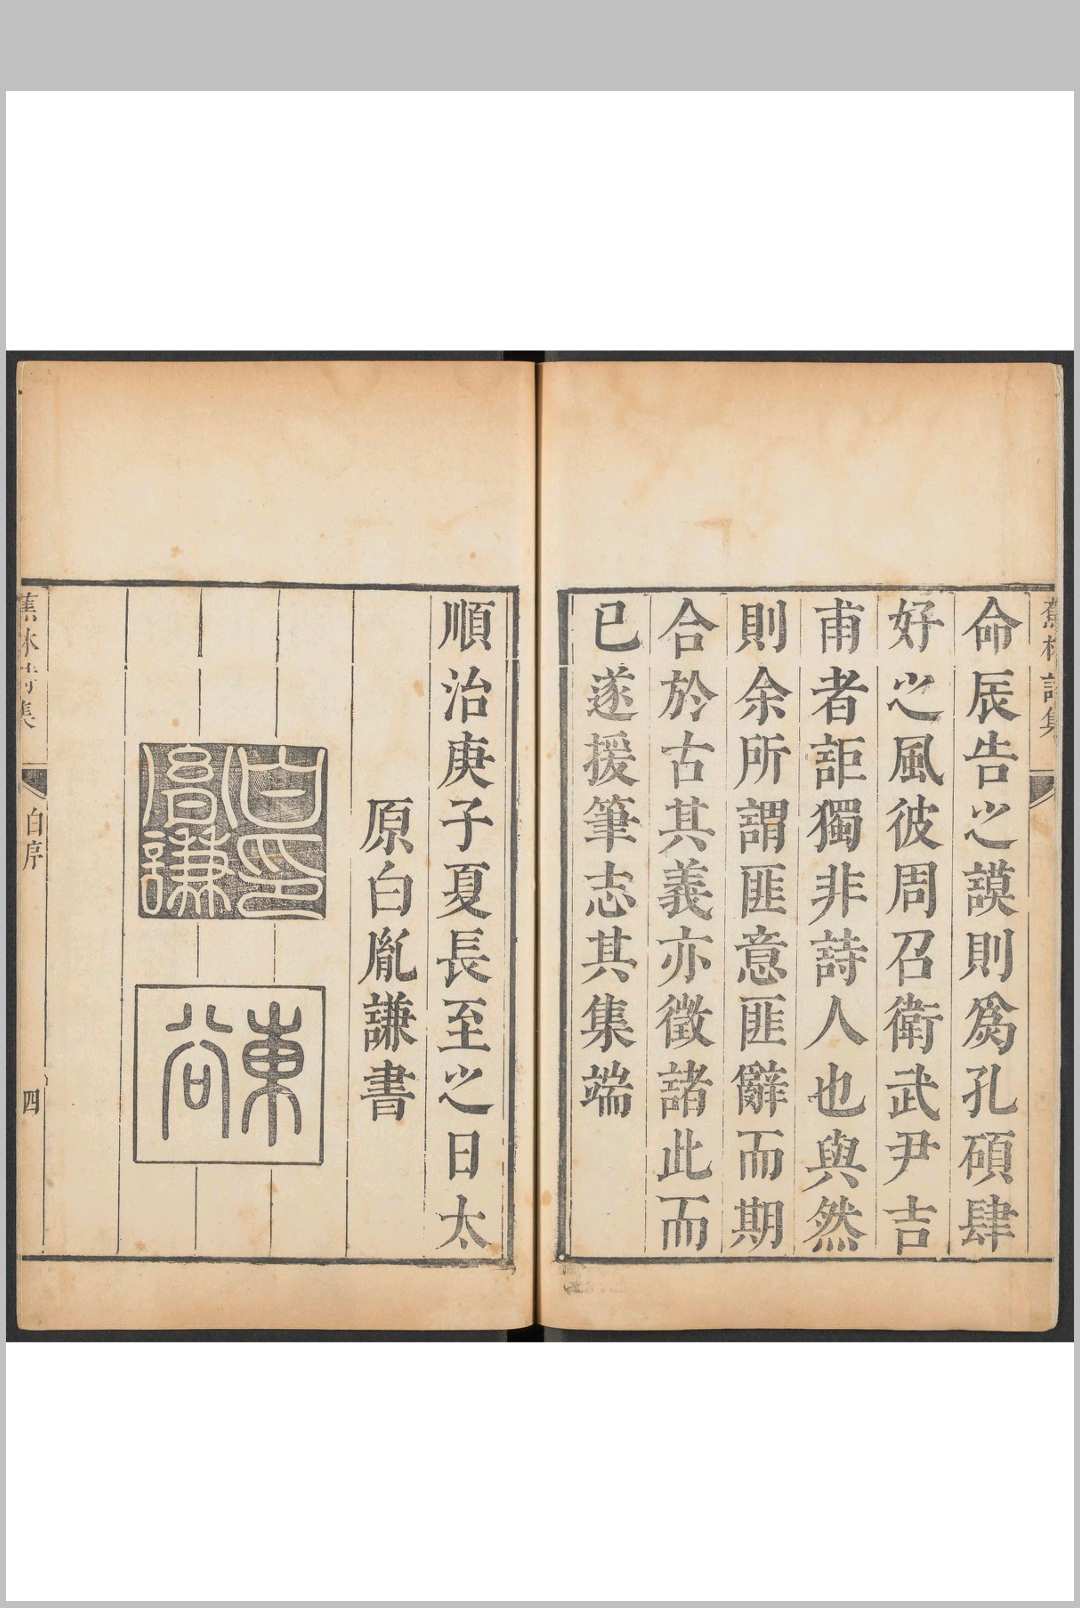 命辰告之謨則爲孔碩肆
好之風彼周召衛武尹吉
甫者詎獨非詩人也與然
則余所謂匪意匪辭而期
合於古其義亦徵諸此而
已遂援筆志其集端
順治庚子夏長至之日太
原白胤謙書
白胤謙印
東谷
蕉林詩集
白序
四